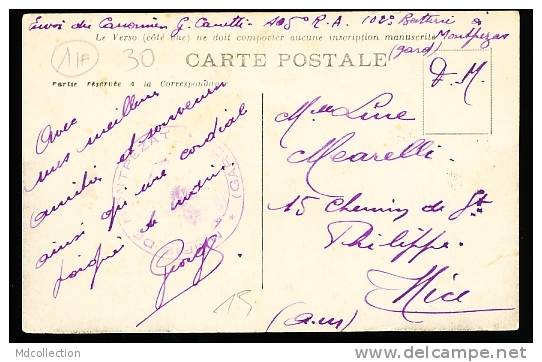 Envoi du Canonnier G. Canetti 405° R.A. 102e Batterie à
Montpezat
(gard)
Le Verso (côté vue) ne doit comporter aucune inscription manuscrite
CARTE POSTALE
Partie réservée à la Correspondance
11F
30
F.M.
Avec
mes meilleurs
amitiés et souvenirs
ainsi qu'une cordial
poignée de mains
Georges
MONTPEZAT
(GARD)
15
Melle Line
Mearelli
15 Chemin de St
Philippe
Nice
(a.m)
Mdcollection
http://www.delcampe.net